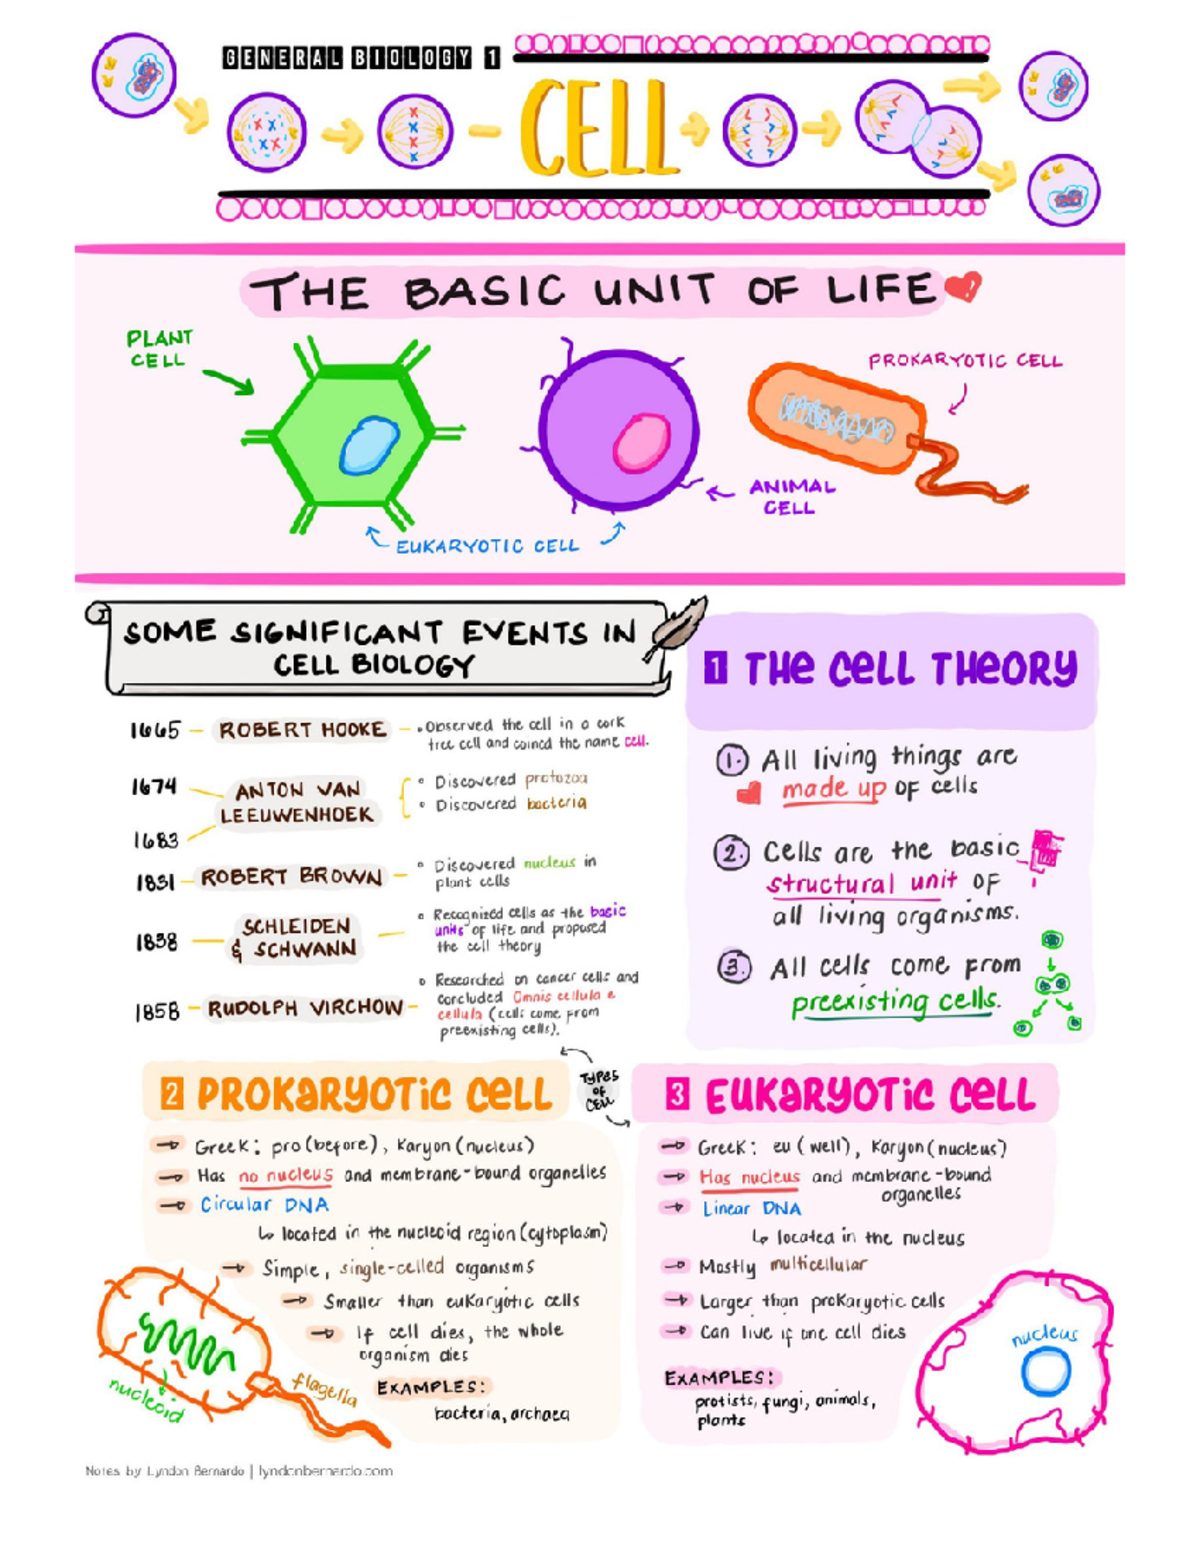 GENERAL BIOLOGY 1
CELL
THE BASIC UNIT OF LIFE
PLANT
CELL
PROKARYOTIC CELL
ANIMAL
CELL
EUKARYOTIC CELL
SOME SIGNIFICANT EVENTS IN
CELL BIOLOGY
1665 - ROBERT HOOKE - • Observed the cell in a cork
tree cell and coined the name cell.
1674
ANTON VAN
LEEUWENHOEK
1683
• Discovered protozoa
• Discovered bacteria
1831 - ROBERT BROWN - • Discovered nucleus in
plant cells
1838 - SCHLEIDEN
& SCHWANN
• Recognized cells as the basic
units of life and proposed
the cell theory
1858 - RUDOLPH VIRCHOW - • Researched on cancer cells and
concluded Omnis cellula e
cellula (cells come from
preexisting cells).
1 THE CELL THEORY
1. All living things are
made up of cells
2. Cells are the basic
structural unit of
all living organisms.
3. All cells come from
preexisting cells.
TYPES
OF
CELL
2 PROKARYOTIC CELL
→ Greek: pro (before), Karyon (nucleus)
→ Has no nucleus and membrane-bound organelles
→ Circular DNA
↳ located in the nucleoid region (cytoplasm)
→ Simple, single-celled organisms
→ Smaller than eukaryotic cells
→ If cell dies, the whole
organism dies
EXAMPLES:
bacteria, archaea
nucleoid
flagella
3 EUKARYOTIC CELL
→ Greek: eu (well), Karyon (nucleus)
→ Has nucleus and membrane-bound
organelles
→ Linear DNA
↳ located in the nucleus
→ Mostly multicellular
→ Larger than prokaryotic cells
→ Can live if one cell dies
EXAMPLES:
protists, fungi, animals,
plants
nucleus
Notes by Lyndon Bernardo | lyndonbernardo.com